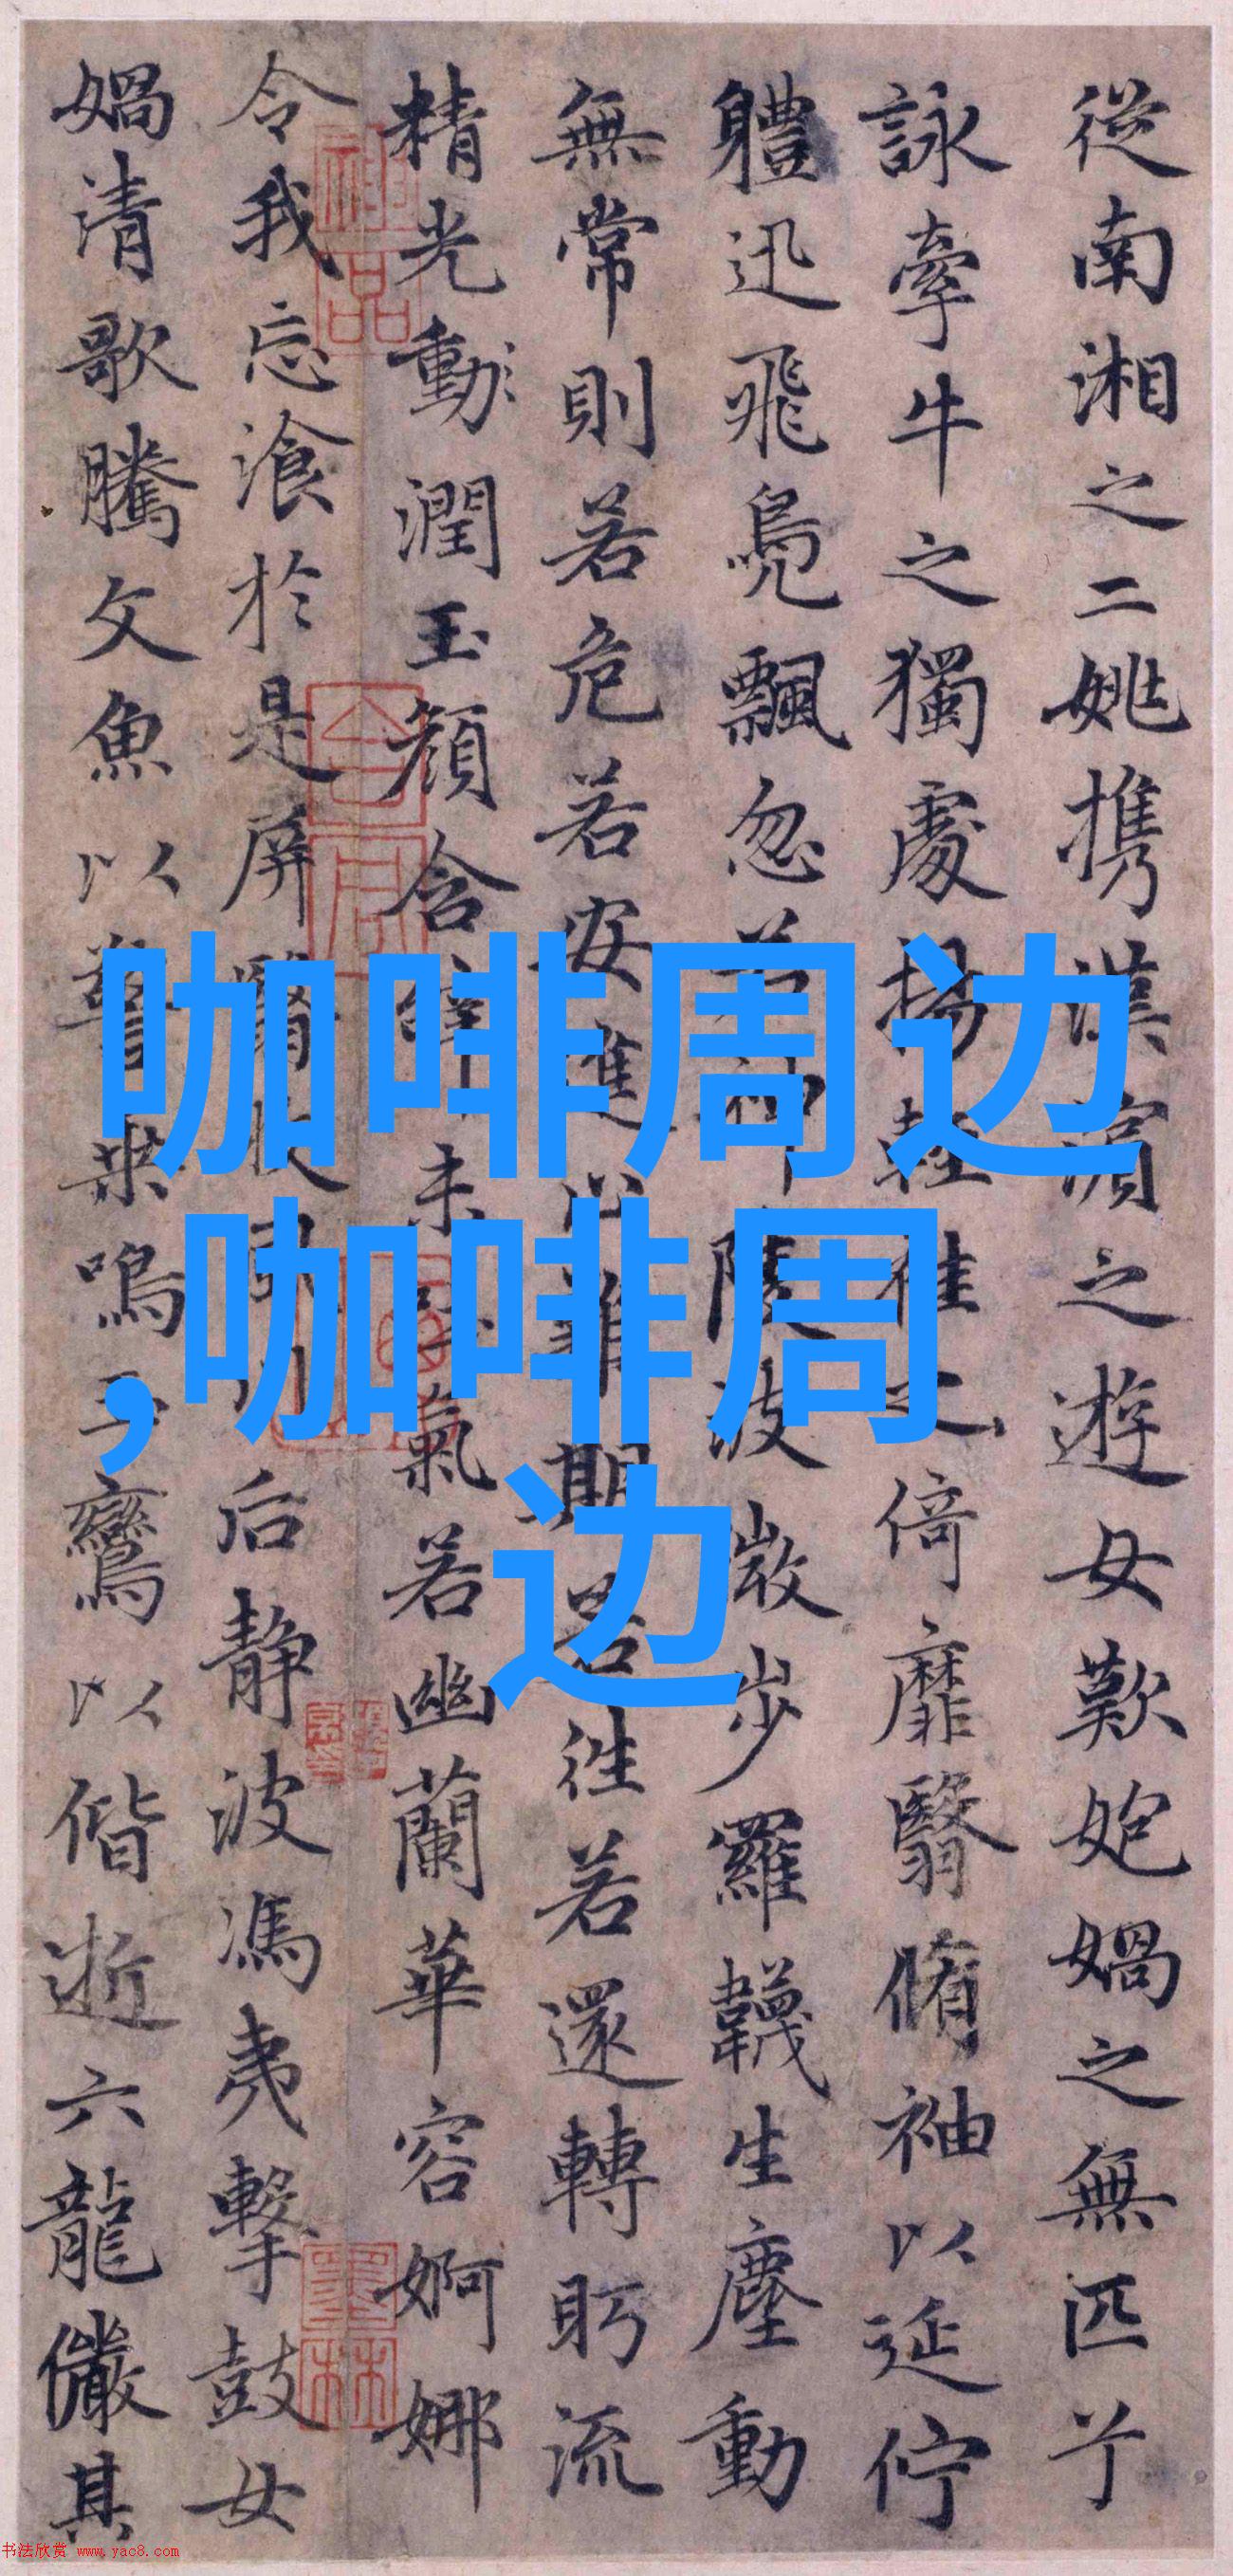 從南湘之二姚携漢濱之遊女歎媧之無匹兮
詠牽牛之獨處揚輕袿之倚靡翳脩袖以延佇
軆迅飛鳧飄忽若神陵波微步羅韈生塵動
無常則若危若安進止難期若往若還轉眄流
精光動潤玉顏含辭未吐氣若幽蘭華容婀娜
令我忘飡於是屏翳收風川后静波馮夷擊鼓女
媧清歌騰文魚以警乘鳴玉鸞以偕逝六龍儼其
咖啡周边
,咖啡周
边
书法欣赏 www.yac8.com